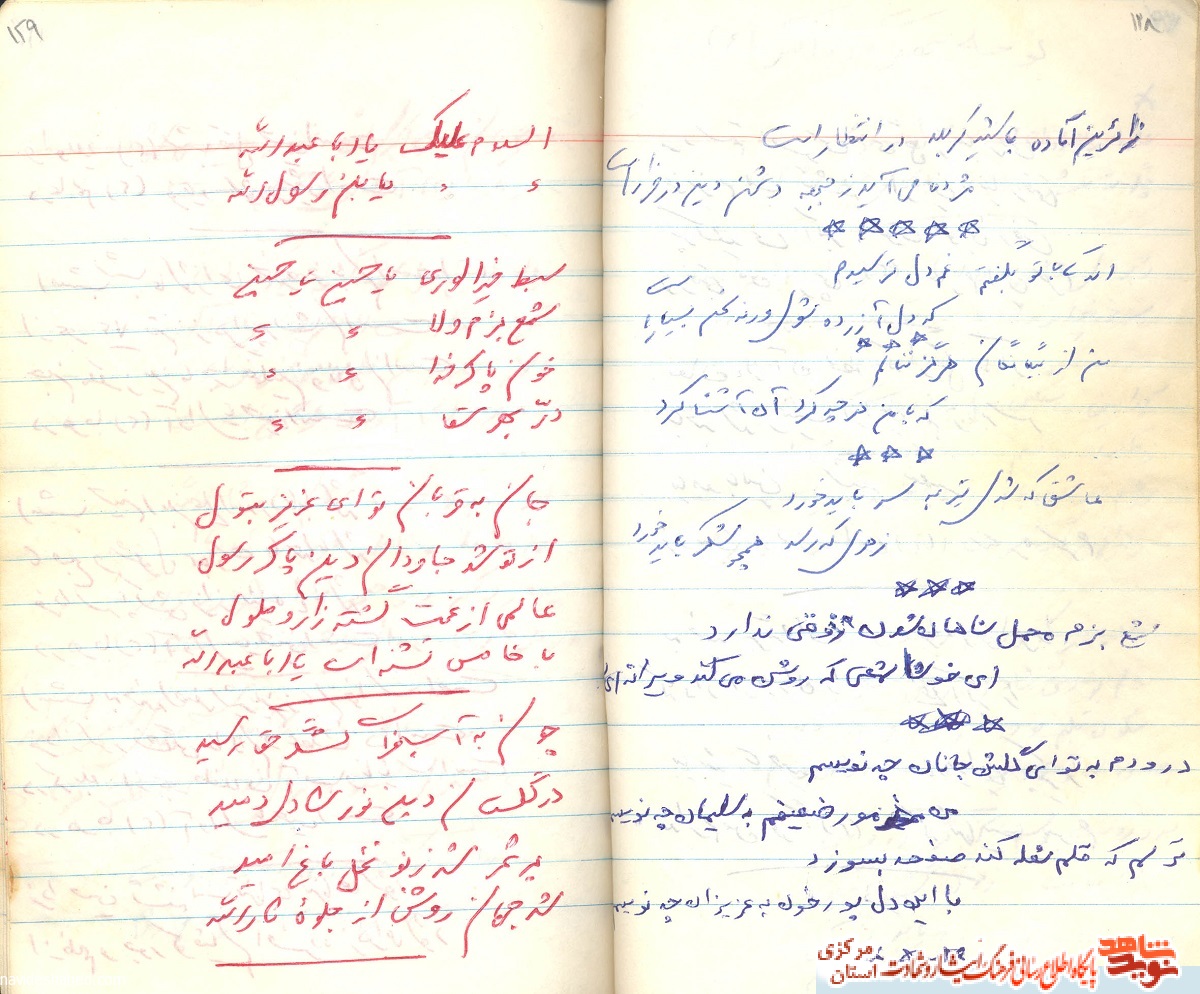 ۱۲۸
زائرین آماده باشید کربلا در انتظار است
مژده می آید ز جبهه دشمن دین در فرار است
اندکی با تو بگفتم غم دل ترسیدم
که دل آزرده شوی ورنه سخن بسیار
من از بیگانگان هرگز ننالم
که با من هرچه کرد آن آشنا کرد
عاشق که شدی تیر به سر باید خورد
زهری که رسد همچو شکر باید خورد
شمع بزم محفل شاهان شدن ذوقی ندارد
ای خوشا شمعی که روشن می کند ویرانه ای
درودم به تو ای گلشن جانان چه نویسم
من مور ضعیفم به سلیمان چه نویسم
ترسم که قلم شعله کند صفحه بسوزد
با این دل پور خون به عزیزان چه نویسم
۱۲۹
السلام علیک یا ابا عبدالله
〃 〃 یا بن رسول الله
سبط خیرالوری یا حسین یا حسین
شمع بزم ولا 〃 〃
خون پاک خدا 〃 〃
درّ بحر سقا 〃 〃
جانم به قربانم تو ای عزیز بتول
از تو شد جاودان دین پاک رسول
عالمی از غمت گشته زار و ملول
با خامس تشنه لب یا ابا عبدالله
چون به آ گشت حق رسید
در گلستان دین نور شادی دمید
پر ثمر شد ز نو نخل باغ امید
شد جهان روشن از جلوهٔ ثارالله
نوید شاهد
پایگاه اطلاع رسانی فرهنگ ایثار و شهادت استان مرکزی